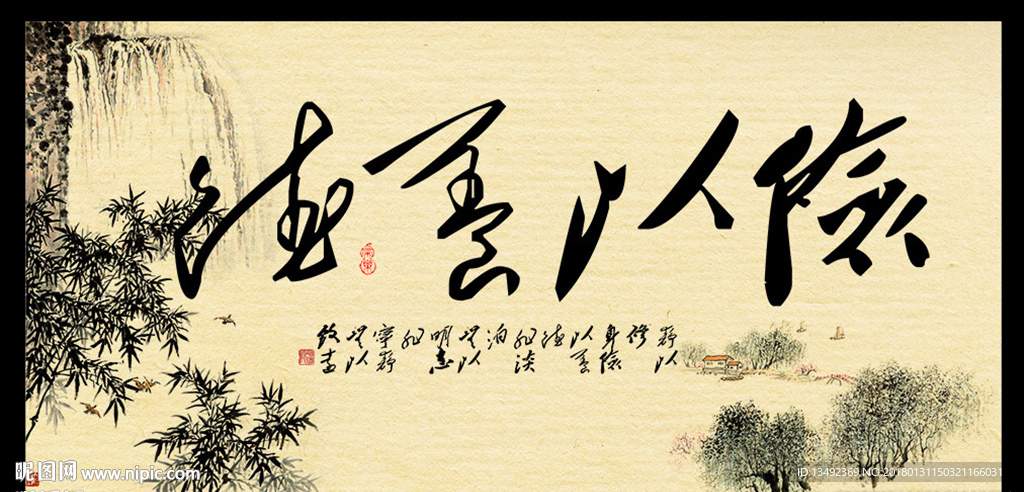 儉以養德
靜以
修
身儉
以養
德
非淡
泊
無以
明志
非
寧靜
無以
致遠
昵图网 www.nipic.com
ID:13492369 NO:20180131150321166031